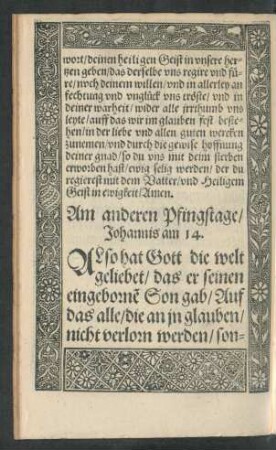 wort/deinen heiligen Geist in vnsere her-
tzen geben/das derselbe vns regire vnd fü-
re/noch deinem willen/vnd in allerley an
fechtung vnd vnglück vns tröste/vnd in
deiner warheit/wider alle irrthumb vns
leyte/auff das wir im glauben fest beste-
hen/in der liebe vnd allen guten wercken
zunemen/vnd durch die gewise hoffnung
deiner gnad/so du vns mit deim sterben
erworben hast/ewig selig werden/der du
regierest mit dem Vatter/vnd Heiligem
Geist in ewigkeit/Amen.
Am anderen Pfingstage/
Johannis am 14.
ALso hat Gott die welt
geliebet/das er seinen
eingebornẽ Son gab/Auff
das alle/die an jn glauben/
nicht verlorn werden/son-